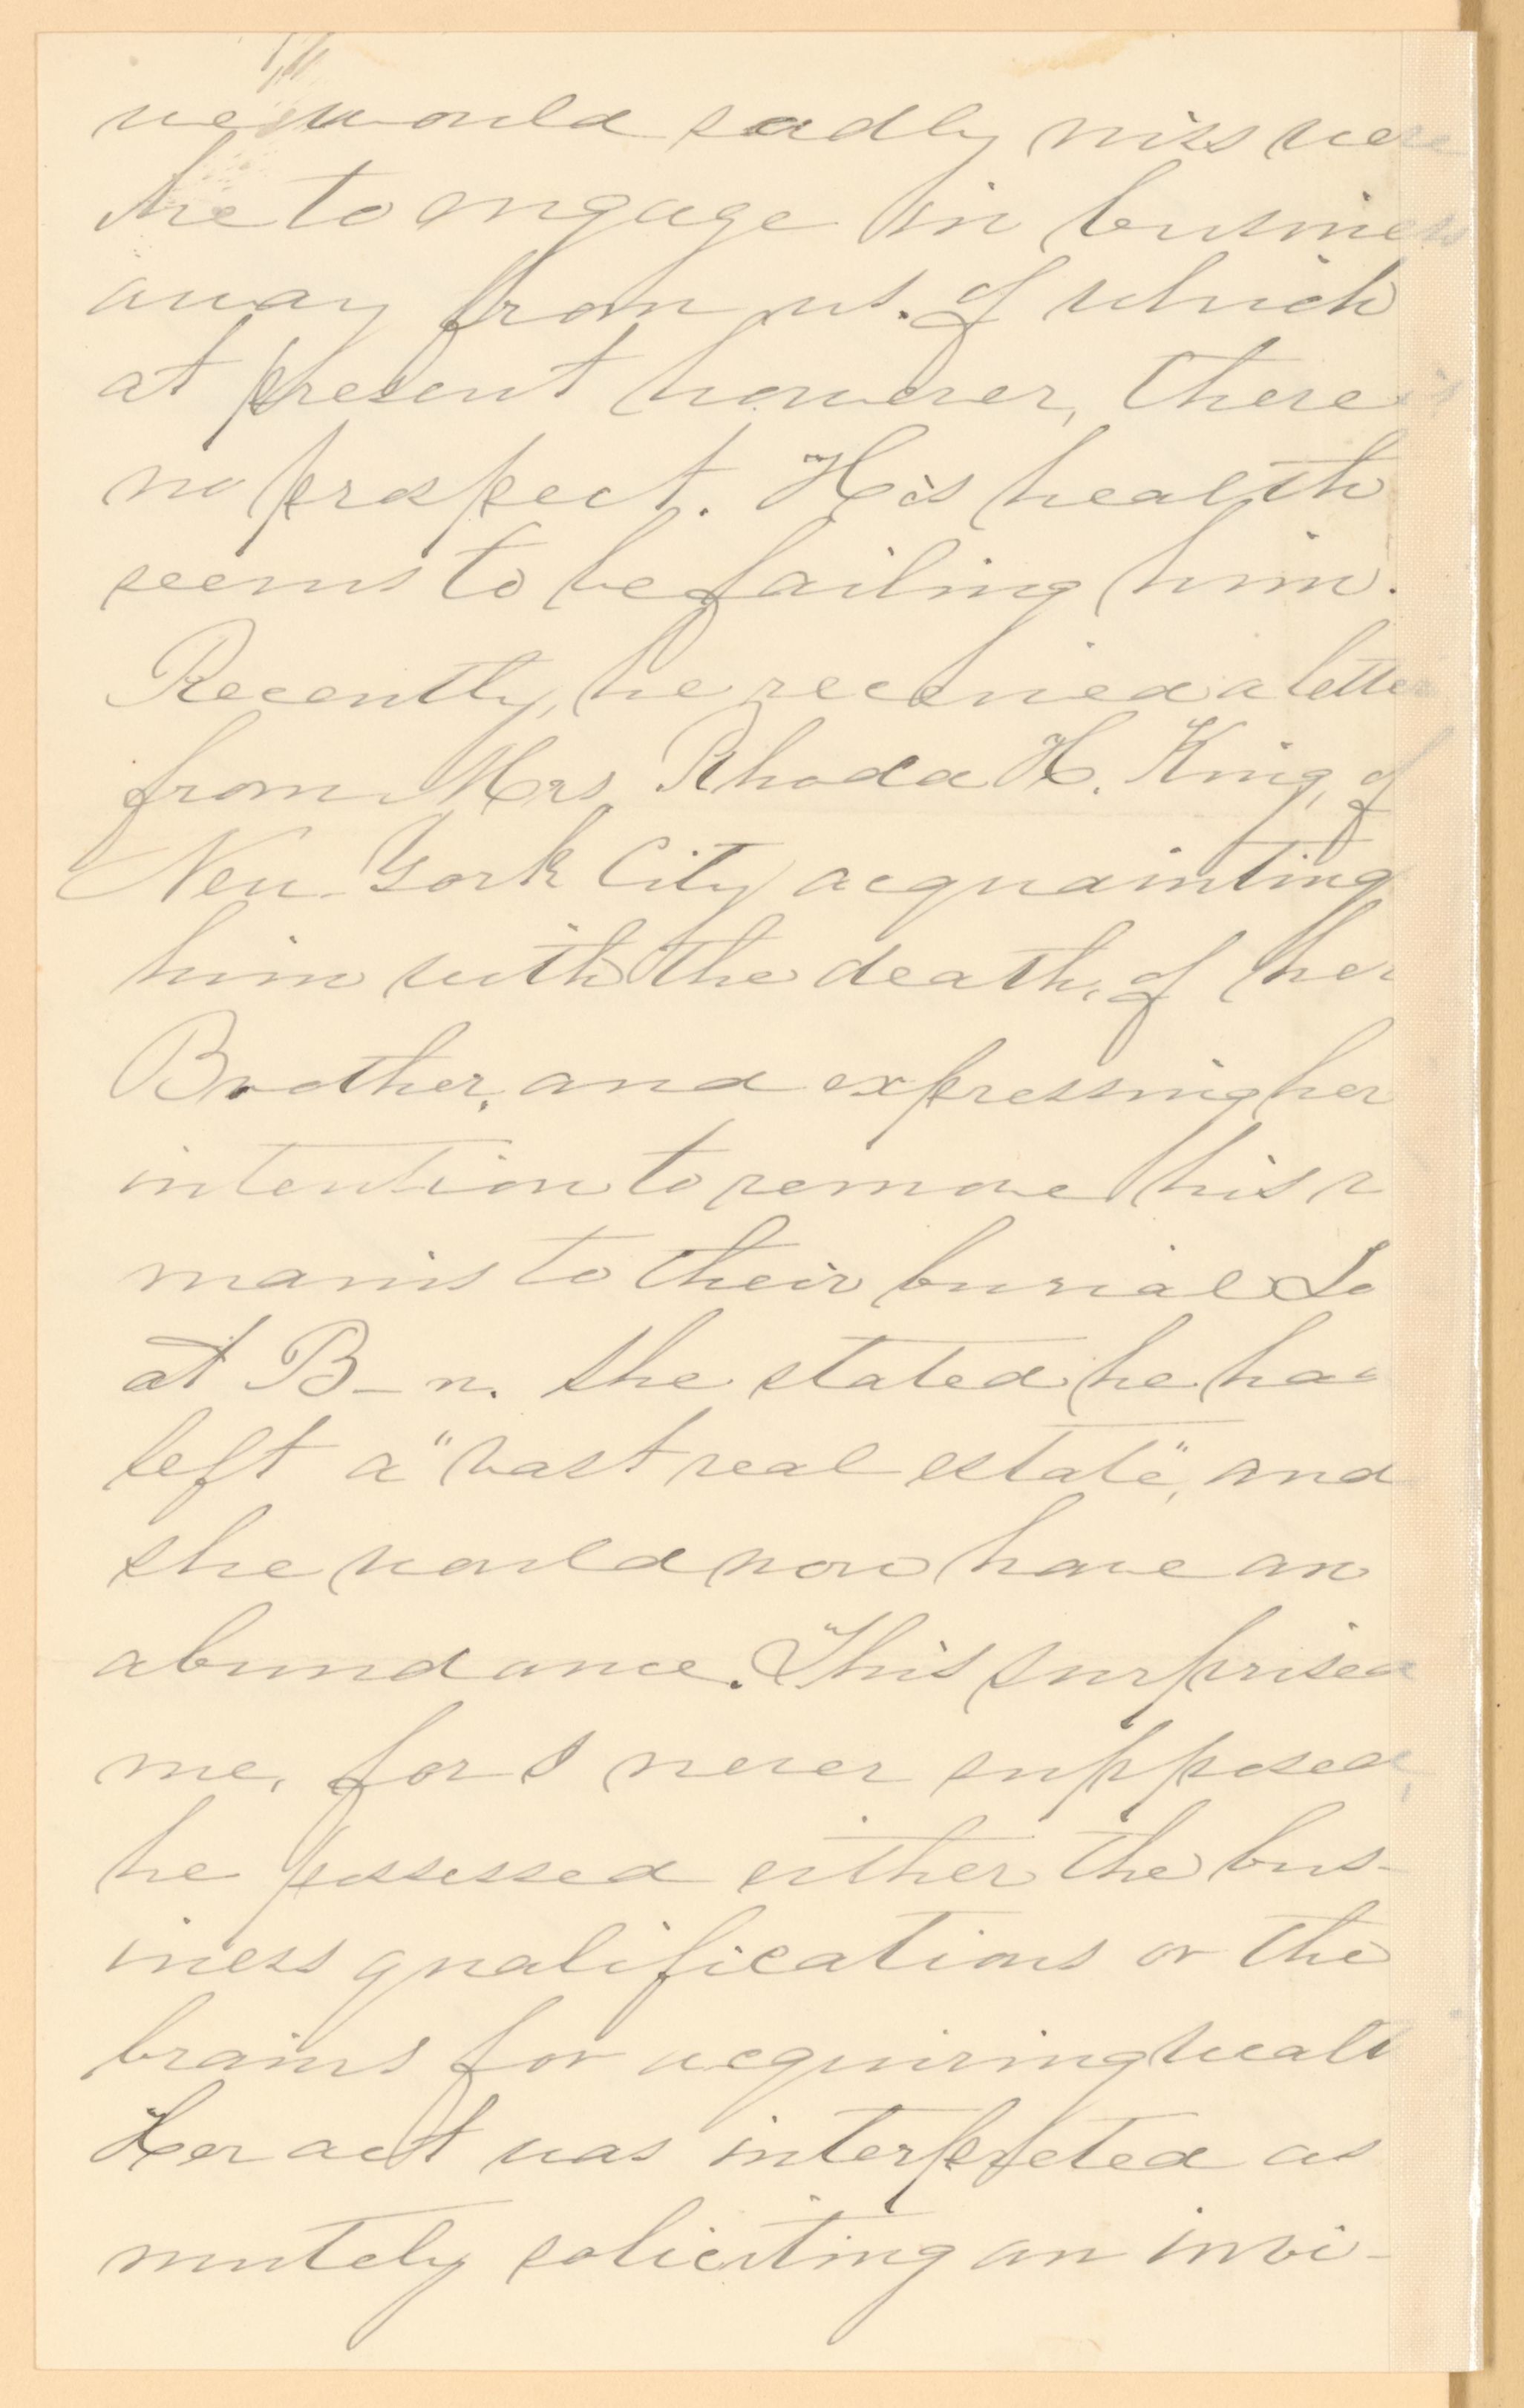 we would sadly miss were
he to engage in business
away from us. of which
at present however, there is
no prospect. His health
seems to be failing him.
Recently, he received a letter
from Mrs Rhoda H. King, of
New York City acquainting
him with the death, of her
Brother, and expressing her
intention to remove his r
mains to their burial Lo
at B-n. She stated he has
left a "vast real estate", and
she would now have an
abundance. This surprised
me, for I never supposed,
he possessed either the bus-
iness qualifications or the
brains for acquiring wealt
Her act was interpreted as
mutely soliciting an invi-